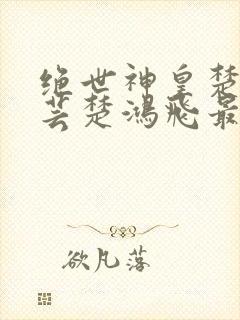 绝世神皇楚
芸楚鸿飞最
欲凡落